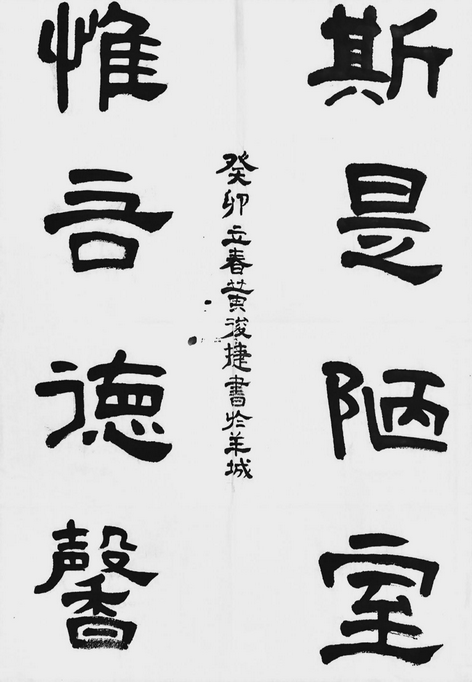 斯是陋室
惟吾德馨
癸卯立春黄浚捷書於羊城